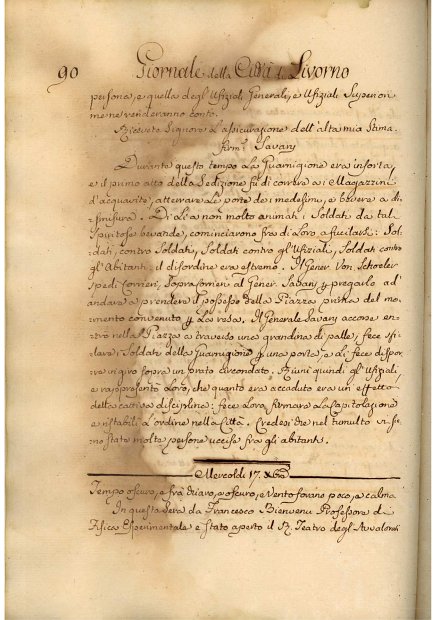 90 Giornale della Città di Livorno
persona, e quella degl'Ufiziali Generali, e Ufiziali Superiori
me ne renderanno conto.
Ricevete Signore L'assicurazione dell'alta mia Stima.
Firm.° Savary
Durante questo tempo La Guarnigione era insorta,
e il primo atto della Sedizione fù di correre a i Magazzini
d'acquavite, atterrare Le porte de i medesimi, e bevere a di-
smisura. Di Li a non molto animati i Soldati da tal
spiritose bevande, cominciarono fra di Loro a fucilarsi: Sol-
dati, contro Soldati, Soldati contro gl'Ufiziali, Soldati contro
gl'Abitanti, il disordine era estremo. Il Gener. Von Schoeler
spedì Corrieri, sopra Corrieri al Gener. Savary p pregarlo ad
andare a prendere il possesso della Piazza prima del mo-
mento convenuto p La resa. Il Generale Savary accorse en-
trò nella Piazza a traverso una grandina di palle, fece sfi-
lare i Soldati della Guarnigione p una porta, e Li fece dispor-
re in giro sopra un prato circondato. Riunì quindi gl'Ufiziali,
e rappresentò Loro, che quanto era accaduto era un effetto
della cattiva disciplina: fece Loro firmare La Capitolazione
e ristabilì L'ordine nella Città. Credesi che nel tumulto vi sie-
no state molte persone uccise fra gli abitanti.
Mercoldì 17. Xbre
Tempo oscuro, e frà chiaro, e oscuro, e Vento fovano poco, e calma
In questa Sera da Francesco Bienvenu Professore di
Fisica Esperimentale e stato aperto il R. Teatro degl'Avvalorati